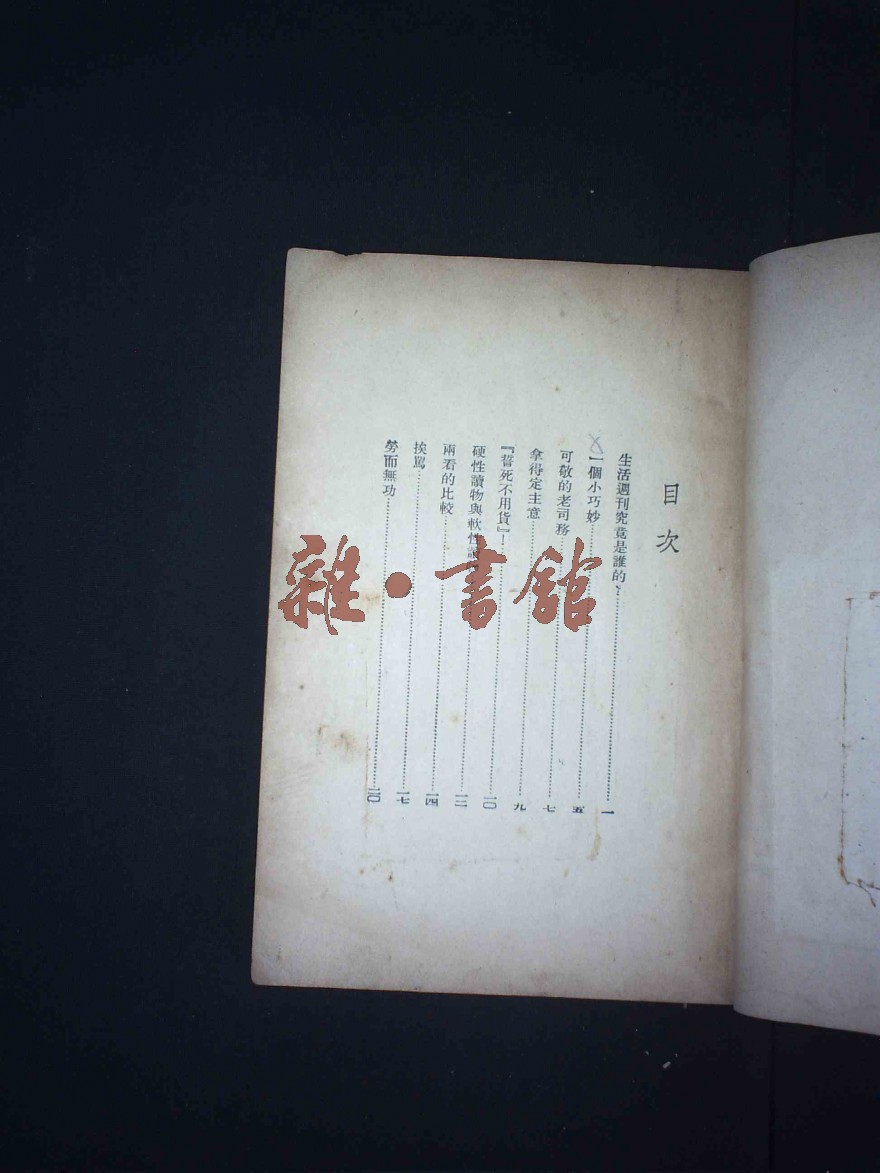 目次
生活週刊究竟是誰的?……一
一個小巧妙……五
可敬的老司務……七
拿得定主意……九
『誓死不用貨』!……一〇
硬性讀物與軟性讀……一二
兩看的比較……一四
挨罵……一七
勞而無功……二〇
雜·書館